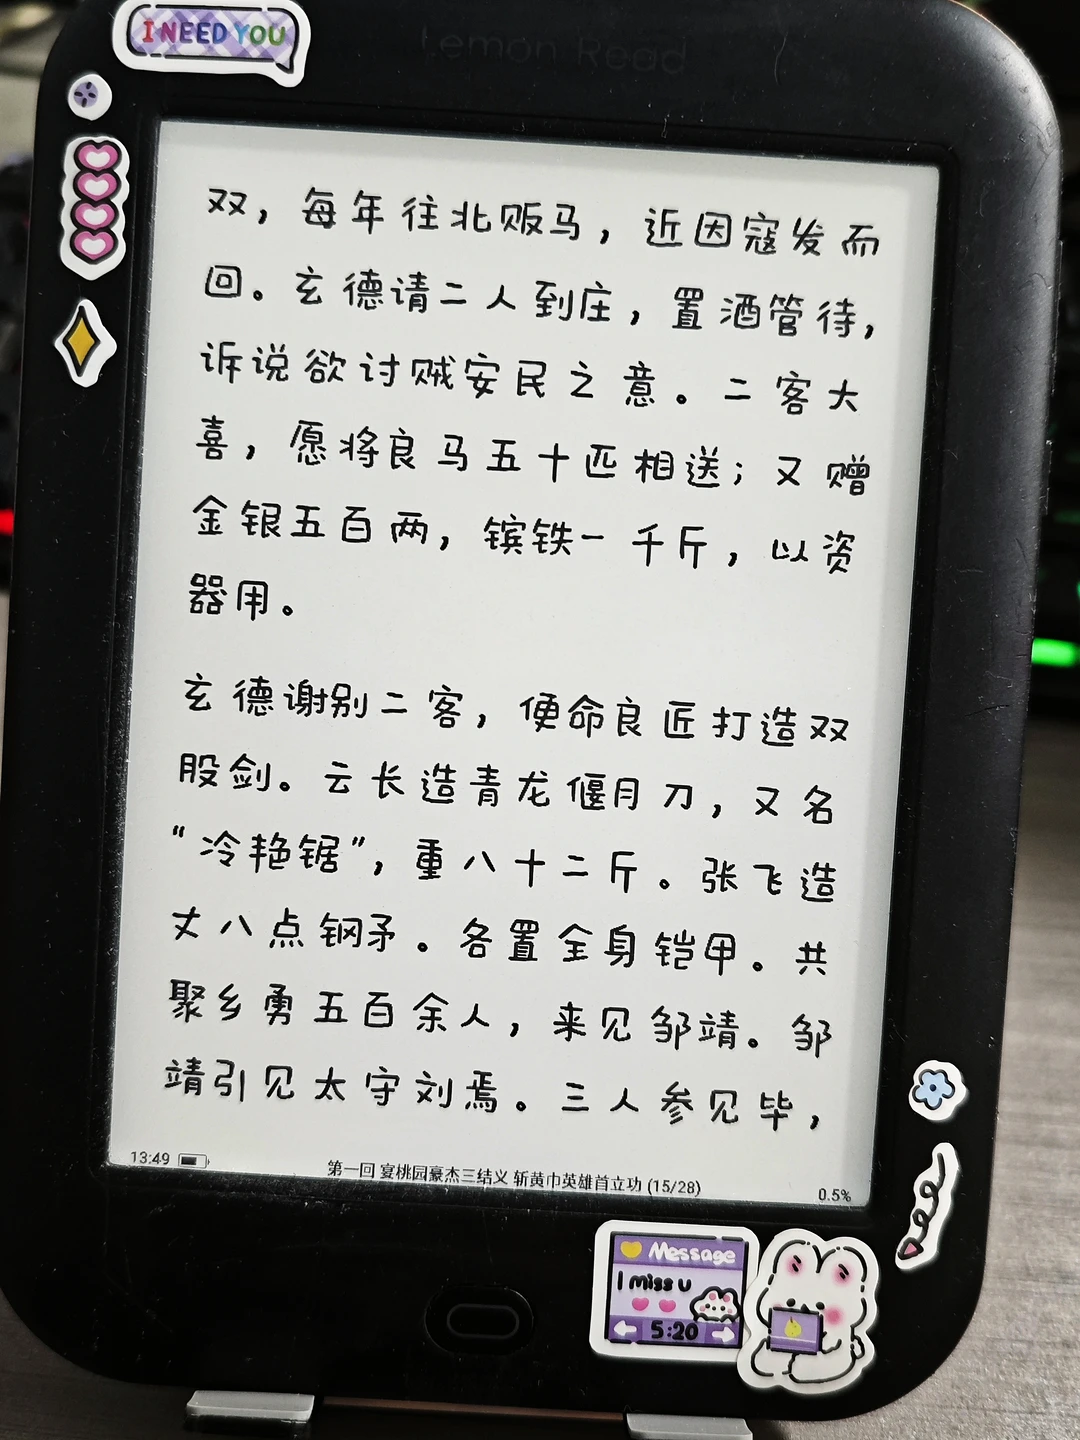 I NEED YOU
Lemon Read
双，每年往北贩马，近因寇发而
回。玄德请二人到庄，置酒管待，
诉说欲讨贼安民之意。二客大
喜，愿将良马五十匹相送；又赠
金银五百两，镔铁一千斤，以资
器用。
玄德谢别二客，便命良匠打造双
股剑。云长造青龙偃月刀，又名
“冷艳锯”，重八十二斤。张飞造
丈八点钢矛。各置全身铠甲。共
聚乡勇五百余人，来见邹靖。邹
靖引见太守刘焉。三人参见毕，
13:49
第一回 宴桃园豪杰三结义 斩黄巾英雄首立功 (15/28)
0.5%
Message
I miss u
5:20